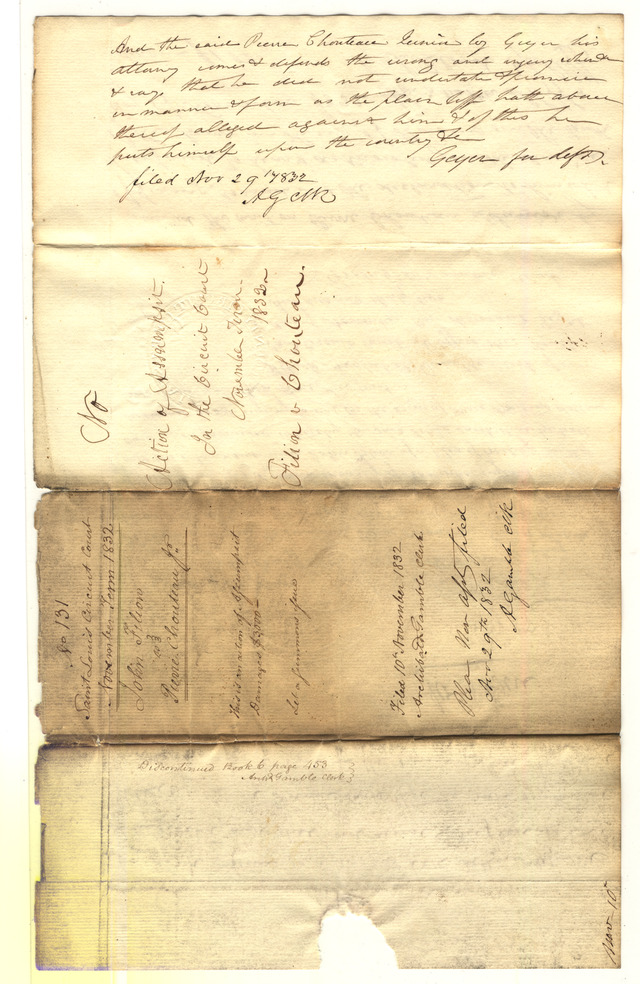 And the said Pierre Chouteau Junior by Geyer his
attorney comes & defends the wrong and injury when &c
& says that he did not undertake & promise
in manner & form as the plaintiff hath above
thereof alleged against him & of this he
puts himself upon the country &c
Geyer for deft.
filed Nov 29th 1832
A G clk
No
Action of Assumpsit.
In the Circuit Court
November Term.
1832
Filion v Chouteau.
No 131
Saint Louis Circuit Court
November Term 1832
John Filion
vs
Pierre Chouteau Jr
This is an action of assumpsit
Damages
Let a summons issue
Filed 10th November 1832
Archibald Gamble Clerk
Plea Non Asst filed
Nov 29th 1832
A Gamble Clk
Discontinued Book 6 page 453
Archd Gamble Clerk
Nov 10th